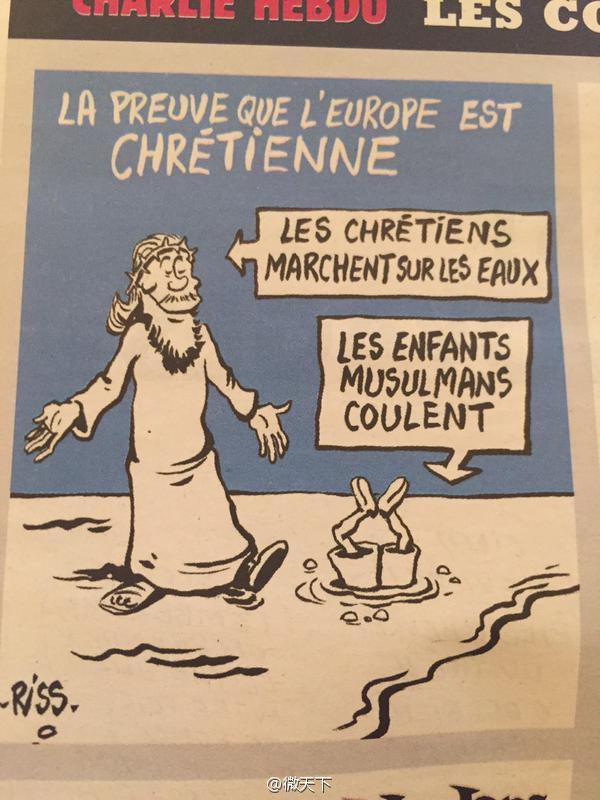 CHARLIE HEBDO LES CO
LA PREUVE QUE L'EUROPE EST
CHRÉTIENNE
LES CHRÉTIENS
MARCHENT SUR LES EAUX
LES ENFANTS
MUSULMANS
COULENT
-RISS-
@微天下